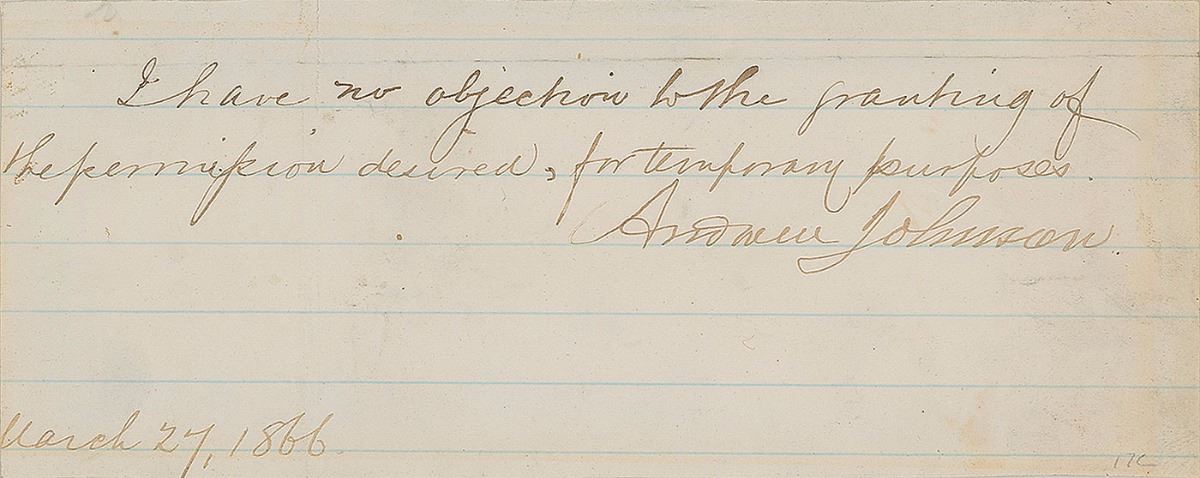 I have no objection to the granting of
the permission desired, for temporary purposes.
Andrew Johnson
March 27, 1866.